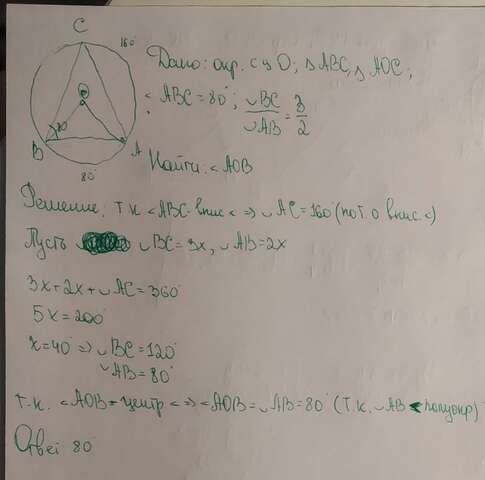 C
160°
O
80
B
A
80°
Дано: окр. с ц О; △ ABC, △ AOC;
< ABC = 80°; ◡BC / ◡AB = 3 / 2
Найти: < AOB
Решение: т.к < ABC - впис < => ◡ AC = 160° (по т. о впис. <)
Пусть ◡ BC = 3x, ◡ AB = 2x
3x + 2x + ◡ AC = 360°
5x = 200°
x = 40° => ◡ BC = 120°
◡ AB = 80°
т.к. < AOB - центр < => < AOB = ◡ AB = 80° (т.к. ◡ AB < полуокр)
Ответ 80